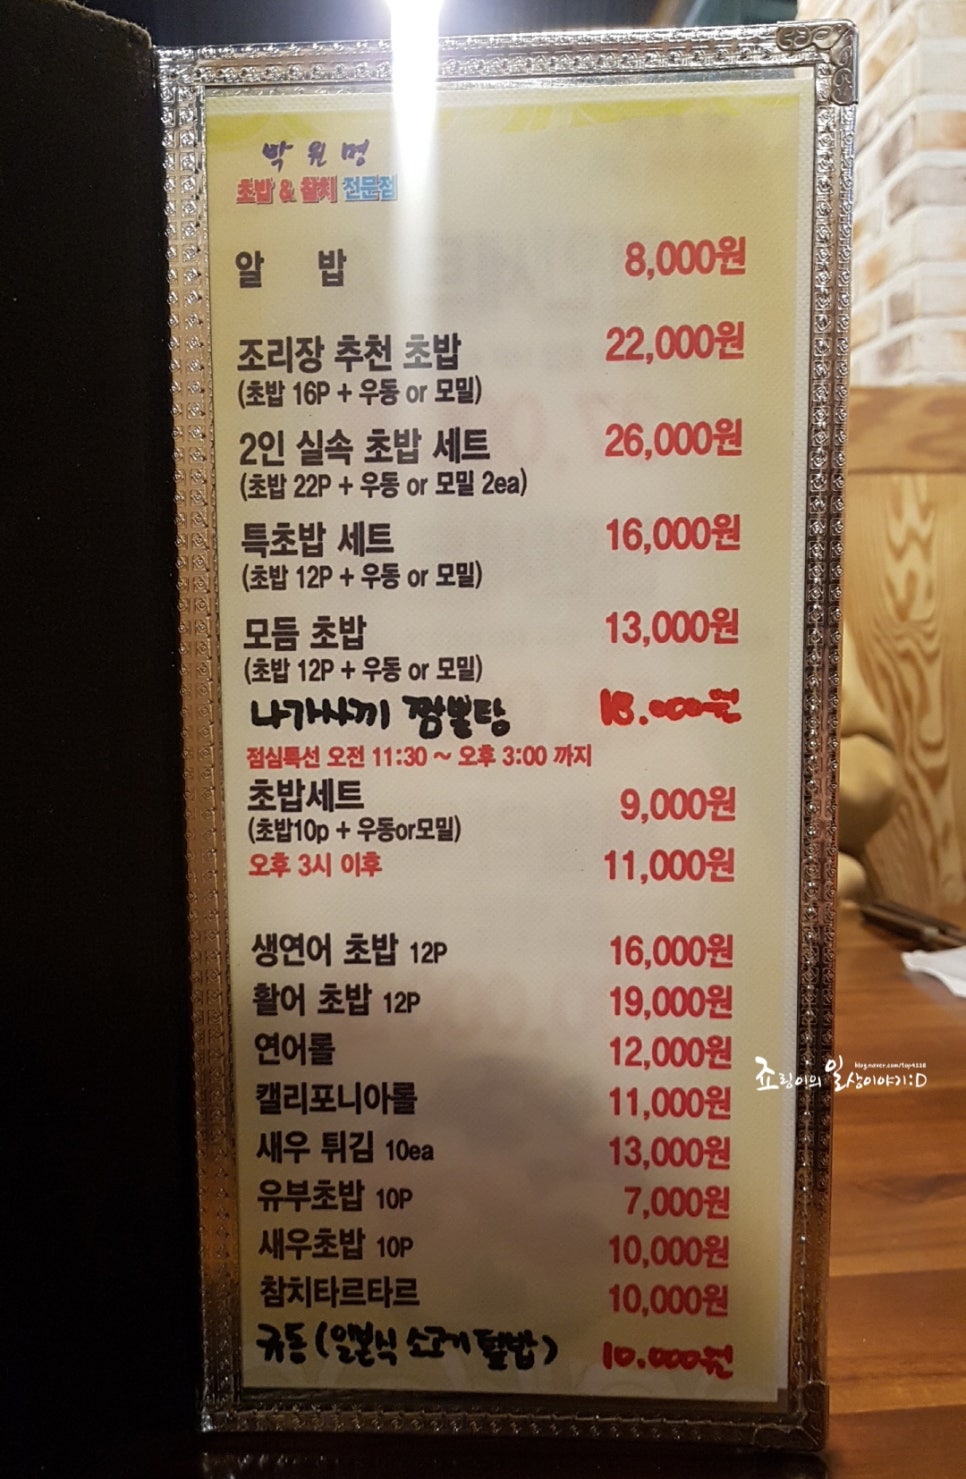 박원명
초밥 & 참치 전문점
알 밥 8,000원
조리장 추천 초밥 22,000원
(초밥 16P + 우동 or 모밀)
2인 실속 초밥 세트 26,000원
(초밥 22P + 우동 or 모밀 2ea)
특초밥 세트 16,000원
(초밥 12P + 우동 or 모밀)
모듬 초밥 13,000원
(초밥 12P + 우동 or 모밀)
나가사끼 짬뽕탕 18.000원
점심특선 오전 11:30 ~ 오후 3:00 까지
초밥세트 9,000원
(초밥10p + 우동or모밀)
오후 3시 이후 11,000원
생연어 초밥 12P 16,000원
활어 초밥 12P 19,000원
연어롤 12,000원
캘리포니아롤 11,000원
새우 튀김 10ea 13,000원
유부초밥 10P 7,000원
새우초밥 10P 10,000원
참치타르타르 10,000원
규동 (일본식 소고기 덮밥) 10.000원
blog.naver.com/top4228
죠링이의 일상이야기:D